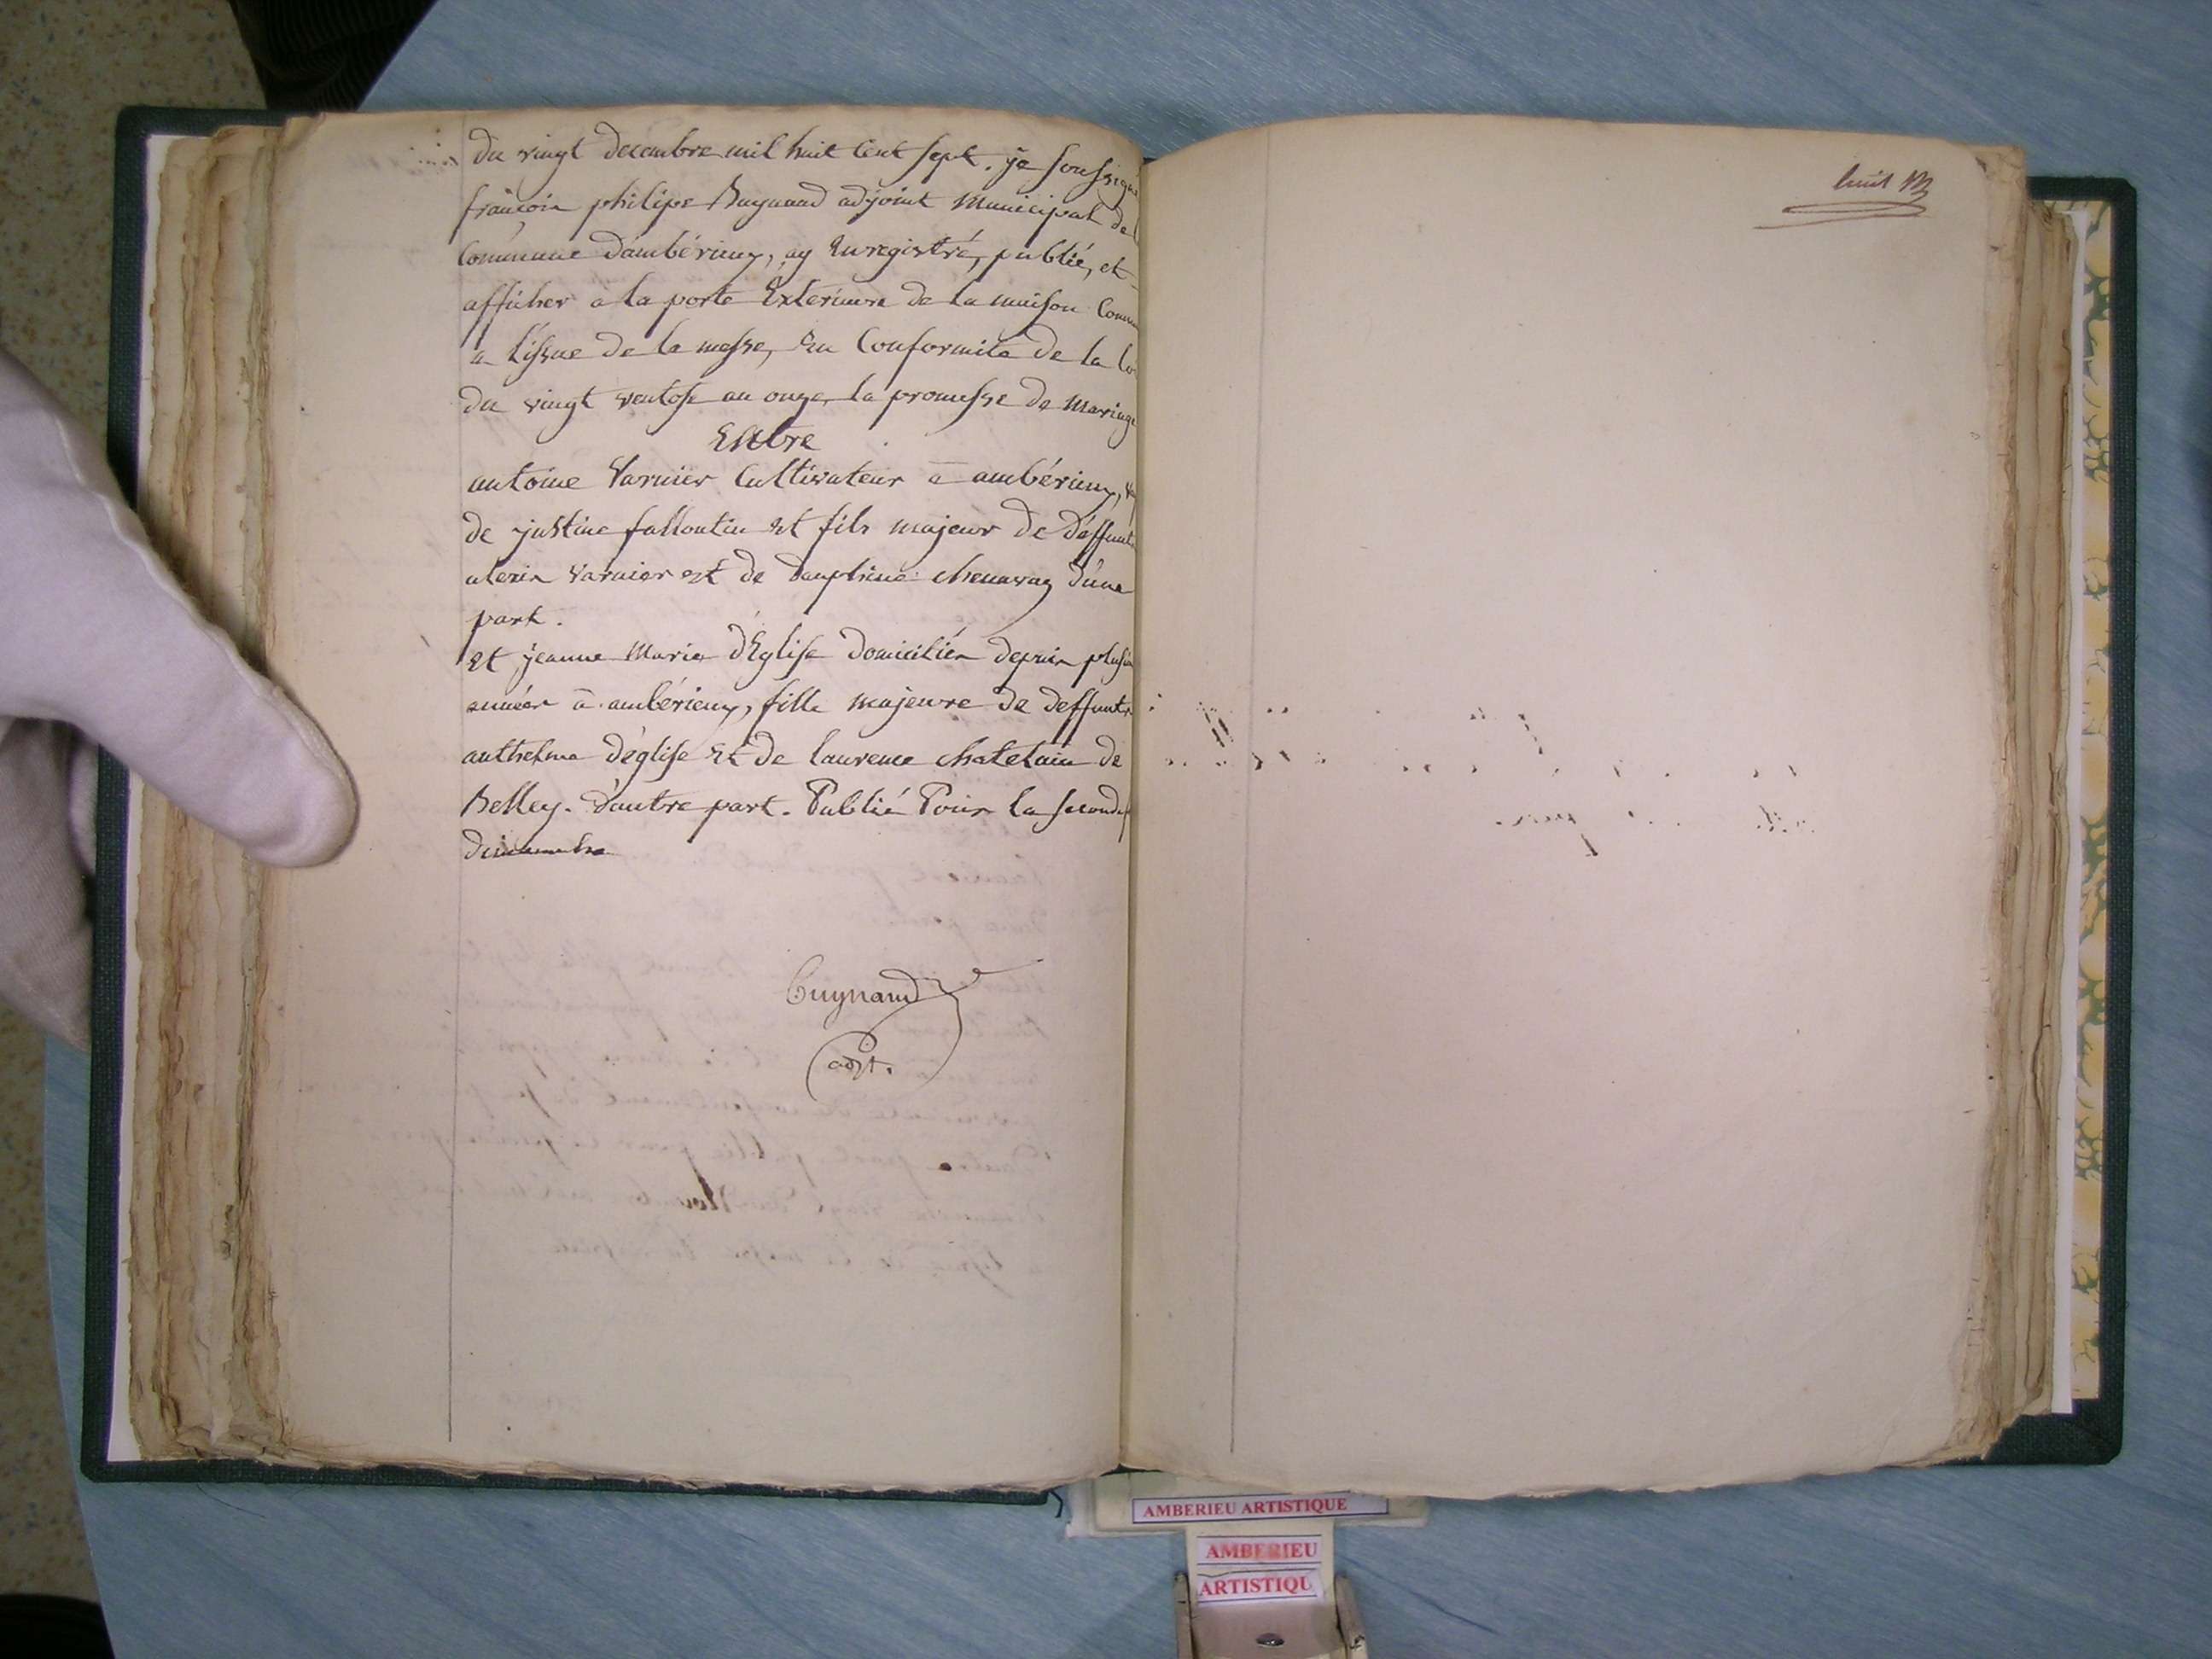 du vingt decembre mil huit cent sept. je soussigné
françois philipe Bugnand adjoint Municipal de
Commune d'ambérieux, ay Enregistré, publié, et
afficher a la porte Exterieure de la maison Comm
a l'issue de la messe, En Conformité de la loi
du vingt ventose an onze, la promesse de Mariage
Entre
antoine Varnier Cultivateur a ambérieux,
de justine falloutin Et fils majeur de déffunts
alexis Varnier Et de Dauphine Chenavay d'une
part.
Et jeanne Marie d'Eglise domiciliée depuis plusieu
années a ambérieux, fille majeure de deffunts
anthelme d'église Et de laurence Chatelain de
Belley. d'autre part. Publié Pour la seconde
Bugnand
adjt.
huit
AMBERIEU ARTISTIQUE
AMBERIEU
ARTISTIQU